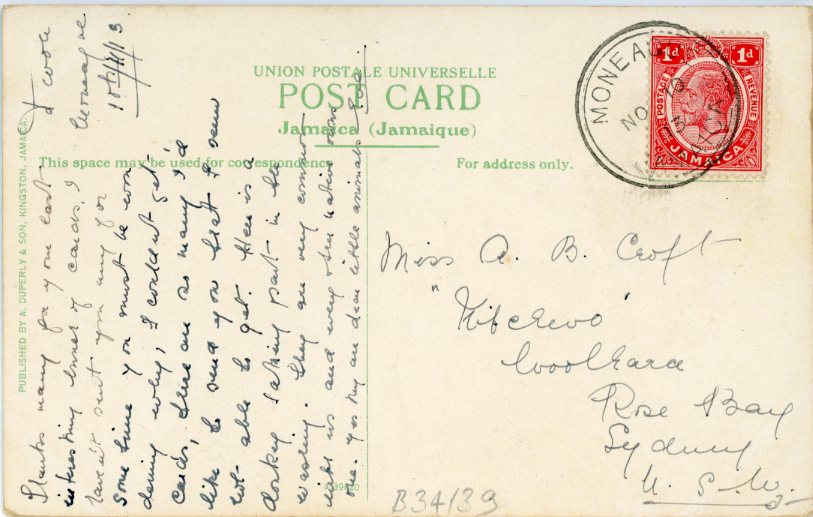 UNION POSTALE UNIVERSELLE
POST CARD
Jamaica (Jamaique)
This space may be used for correspondence
For address only.
PUBLISHED BY A. DUPERLY & SON, KINGSTON, JAMAICA.
MONEAGUE
NO 10
1d 1d
POSTAGE REVENUE
JAMAICA
Moneague
10th/11/13
Thanks many for your last
interesting bunch of cards. I
haven't sent you any for
some time you must be won
dering why, I couldn't get
cards, there are so many I'd
like to send you but I seem
not able to get. Here is a
donkey taking part in the
washing. They are very common
with us and every native own
one. yes they are dear little animals
Miss A. B. Croft
Woollhara
Rose Bay
Sydney
N. S. W.
B34139